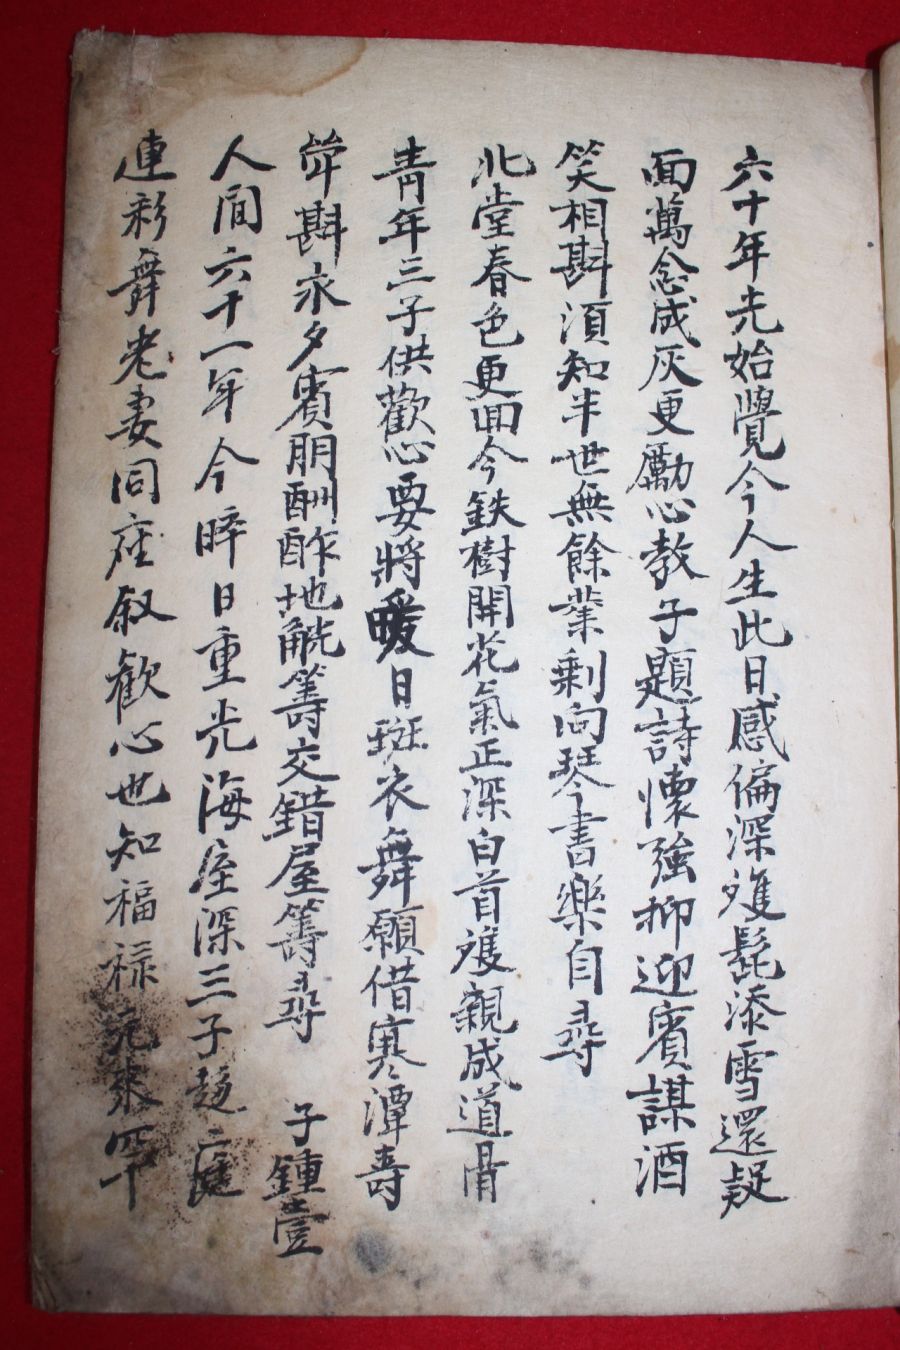 六十年光始覺今人生此日感偏深雙髭添雪還疑
面萬念成灰更勵心教子題詩懷強抑迎賓謀酒
笑相斟須知半世無餘業剩向琴書樂自尋
北堂春色更回今鉄樹開花氣正深白首雙親成道骨
青年三子供歡心要將暖日斑衣舞願借寒潭壽
斝斟永夕賓朋酬酢地觥籌交錯屋籌尋　子鍾壹
人間六十一年今晬日重光海屋深三子趍庭
連彩舞老妻同座叙歡心也知福祿完來罕